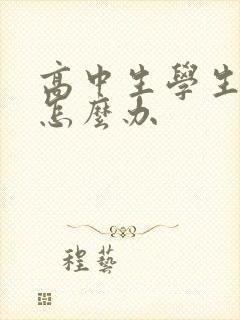 高中生學生
怎麼办
程藝